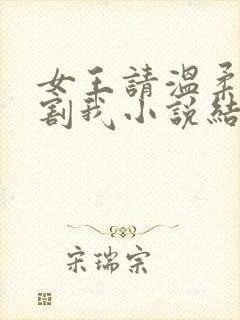 女王請溫柔
割我小說結
宋瑞宗